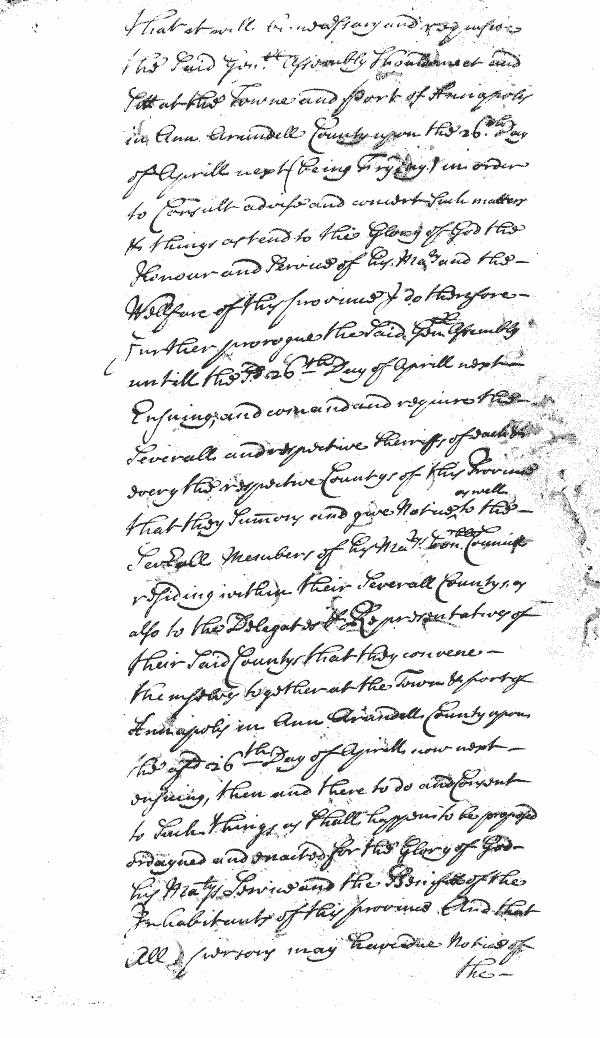 that it will be necessary and requisite
the Said Gen.ll Assembly Should meet and
Sitt at the Towne and Port of Annapolis
in Ann Arundell County upon the 26.th Day
of Aprill next (being Fryday) in order
to Consult advise and concert Such matters
& things as tend to the Glory of God the
Honour and Service of his Ma.ty and the –
Wellfare of this province I do therefore –
Further prorogue the Said Gen.ll Assembly
untill the Sd 26th Day of Aprill next –
Ensuing, and comand and require the –
Severall and respective Sheriffs of each &
every the respective Countys of this Province
that they Summons and give Notice as well to the –
Severall Members of his Ma.tys Hon.ble Councill
residing within their Severall Countys, as
also to the Delegates & Representatives of
their Said Countys that they convene –
themselves together at the Town & port of
Annapolis in Ann Arundell County upon
the afd 26th Day of Aprill now next –
ensuing, then and there to do and Consent
to Such things as shall happen to be proposd
ordayned and enacted for the Glory of God –
his Ma.tys Service and the Benefitt of the
Inhabitants of this province And that
All persons may have due Notice of
the –